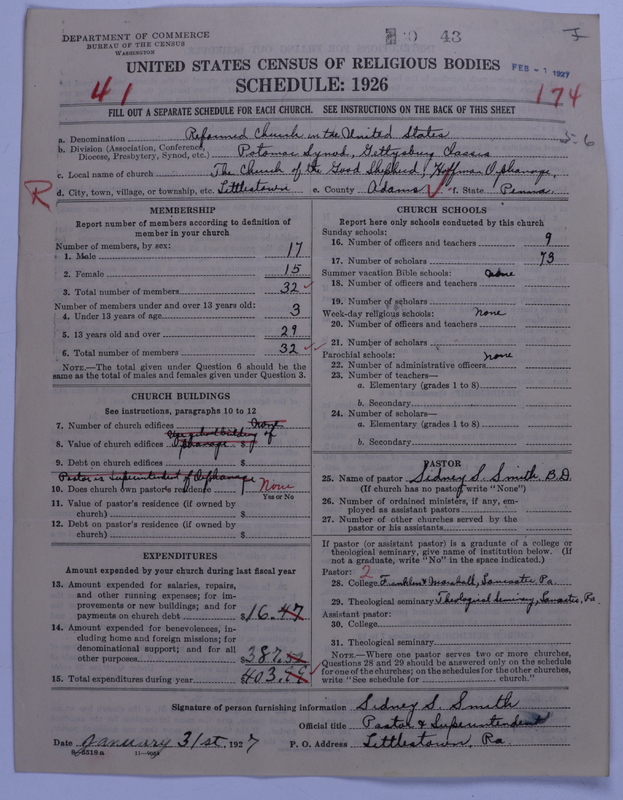 DEPARTMENT OF COMMERCE
BUREAU OF THE CENSUS
WASHINGTON
43
UNITED STATES CENSUS OF RELIGIOUS BODIES
FEB - 1 1927
SCHEDULE: 1926
41
174
FILL OUT A SEPARATE SCHEDULE FOR EACH CHURCH. SEE INSTRUCTIONS ON THE BACK OF THIS SHEET
5-6
a. Denomination Reformed Church in the United States
b. Division (Association, Conference, Diocese, Presbytery, Synod, etc.) Potomac Synod, Gettysburg Classis
c. Local name of church The Church of the Good Shepherd, Hoffman Orphanage,
R
d. City, town, village, or township, etc. Littlestown e. County Adams f. State Penna.
MEMBERSHIP
Report number of members according to definition of
member in your church
Number of members, by sex:
1. Male 17
2. Female 15
3. Total number of members 32
Number of members under and over 13 years old:
4. Under 13 years of age 3
5. 13 years old and over 29
6. Total number of members 32
NOTE.—The total given under Question 6 should be the
same as the total of males and females given under Question 3.
CHURCH BUILDINGS
See instructions, paragraphs 10 to 12
7. Number of church edifices None
Use school building of
8. Value of church edifices orphanage. $
9. Debt on church edifices $
Pastor is Superintendent of Orphanage
10. Does church own pastor's residence None
Yes or No
11. Value of pastor's residence (if owned by
church) $
12. Debt on pastor's residence (if owned by
church) $
EXPENDITURES
Amount expended by your church during last fiscal year
13. Amount expended for salaries, repairs,
and other running expenses; for im-
provements or new buildings; and for
payments on church debt $16.47
14. Amount expended for benevolences, in-
cluding home and foreign missions; for
denominational support; and for all
other purposes $387.52
15. Total expenditures during year $403.99
CHURCH SCHOOLS
Report here only schools conducted by this church
Sunday schools:
16. Number of officers and teachers 9
17. Number of scholars 73
Summer vacation Bible schools: none
18. Number of officers and teachers
19. Number of scholars
Week-day religious schools: none
20. Number of officers and teachers
21. Number of scholars
Parochial schools: none
22. Number of administrative officers
23. Number of teachers—
a. Elementary (grades 1 to 8)
b. Secondary
24. Number of scholars—
a. Elementary (grades 1 to 8)
b. Secondary
PASTOR
25. Name of pastor Sidney S. Smith, B.D.
(If church has no pastor, write "None")
26. Number of ordained ministers, if any, em-
ployed as assistant pastors
27. Number of other churches served by the
pastor or his assistants
If pastor (or assistant pastor) is a graduate of a college or
theological seminary, give name of institution below. (If
not a graduate, write "No" in the space indicated.)
Pastor: 2
28. College Franklin & Marshall, Lancaster, Pa.
29. Theological seminary Theological Seminary, Lancaster, Pa.
Assistant pastor:
30. College
31. Theological seminary
NOTE.—Where one pastor serves two or more churches,
Questions 28 and 29 should be answered only on the schedule
for one of the churches; on the schedules for the other churches,
write "See schedule for church."
Signature of person furnishing information Sidney S. Smith
Official title Pastor & Superintendent
Date January 31st, 1927 P. O. Address Littlestown, Pa